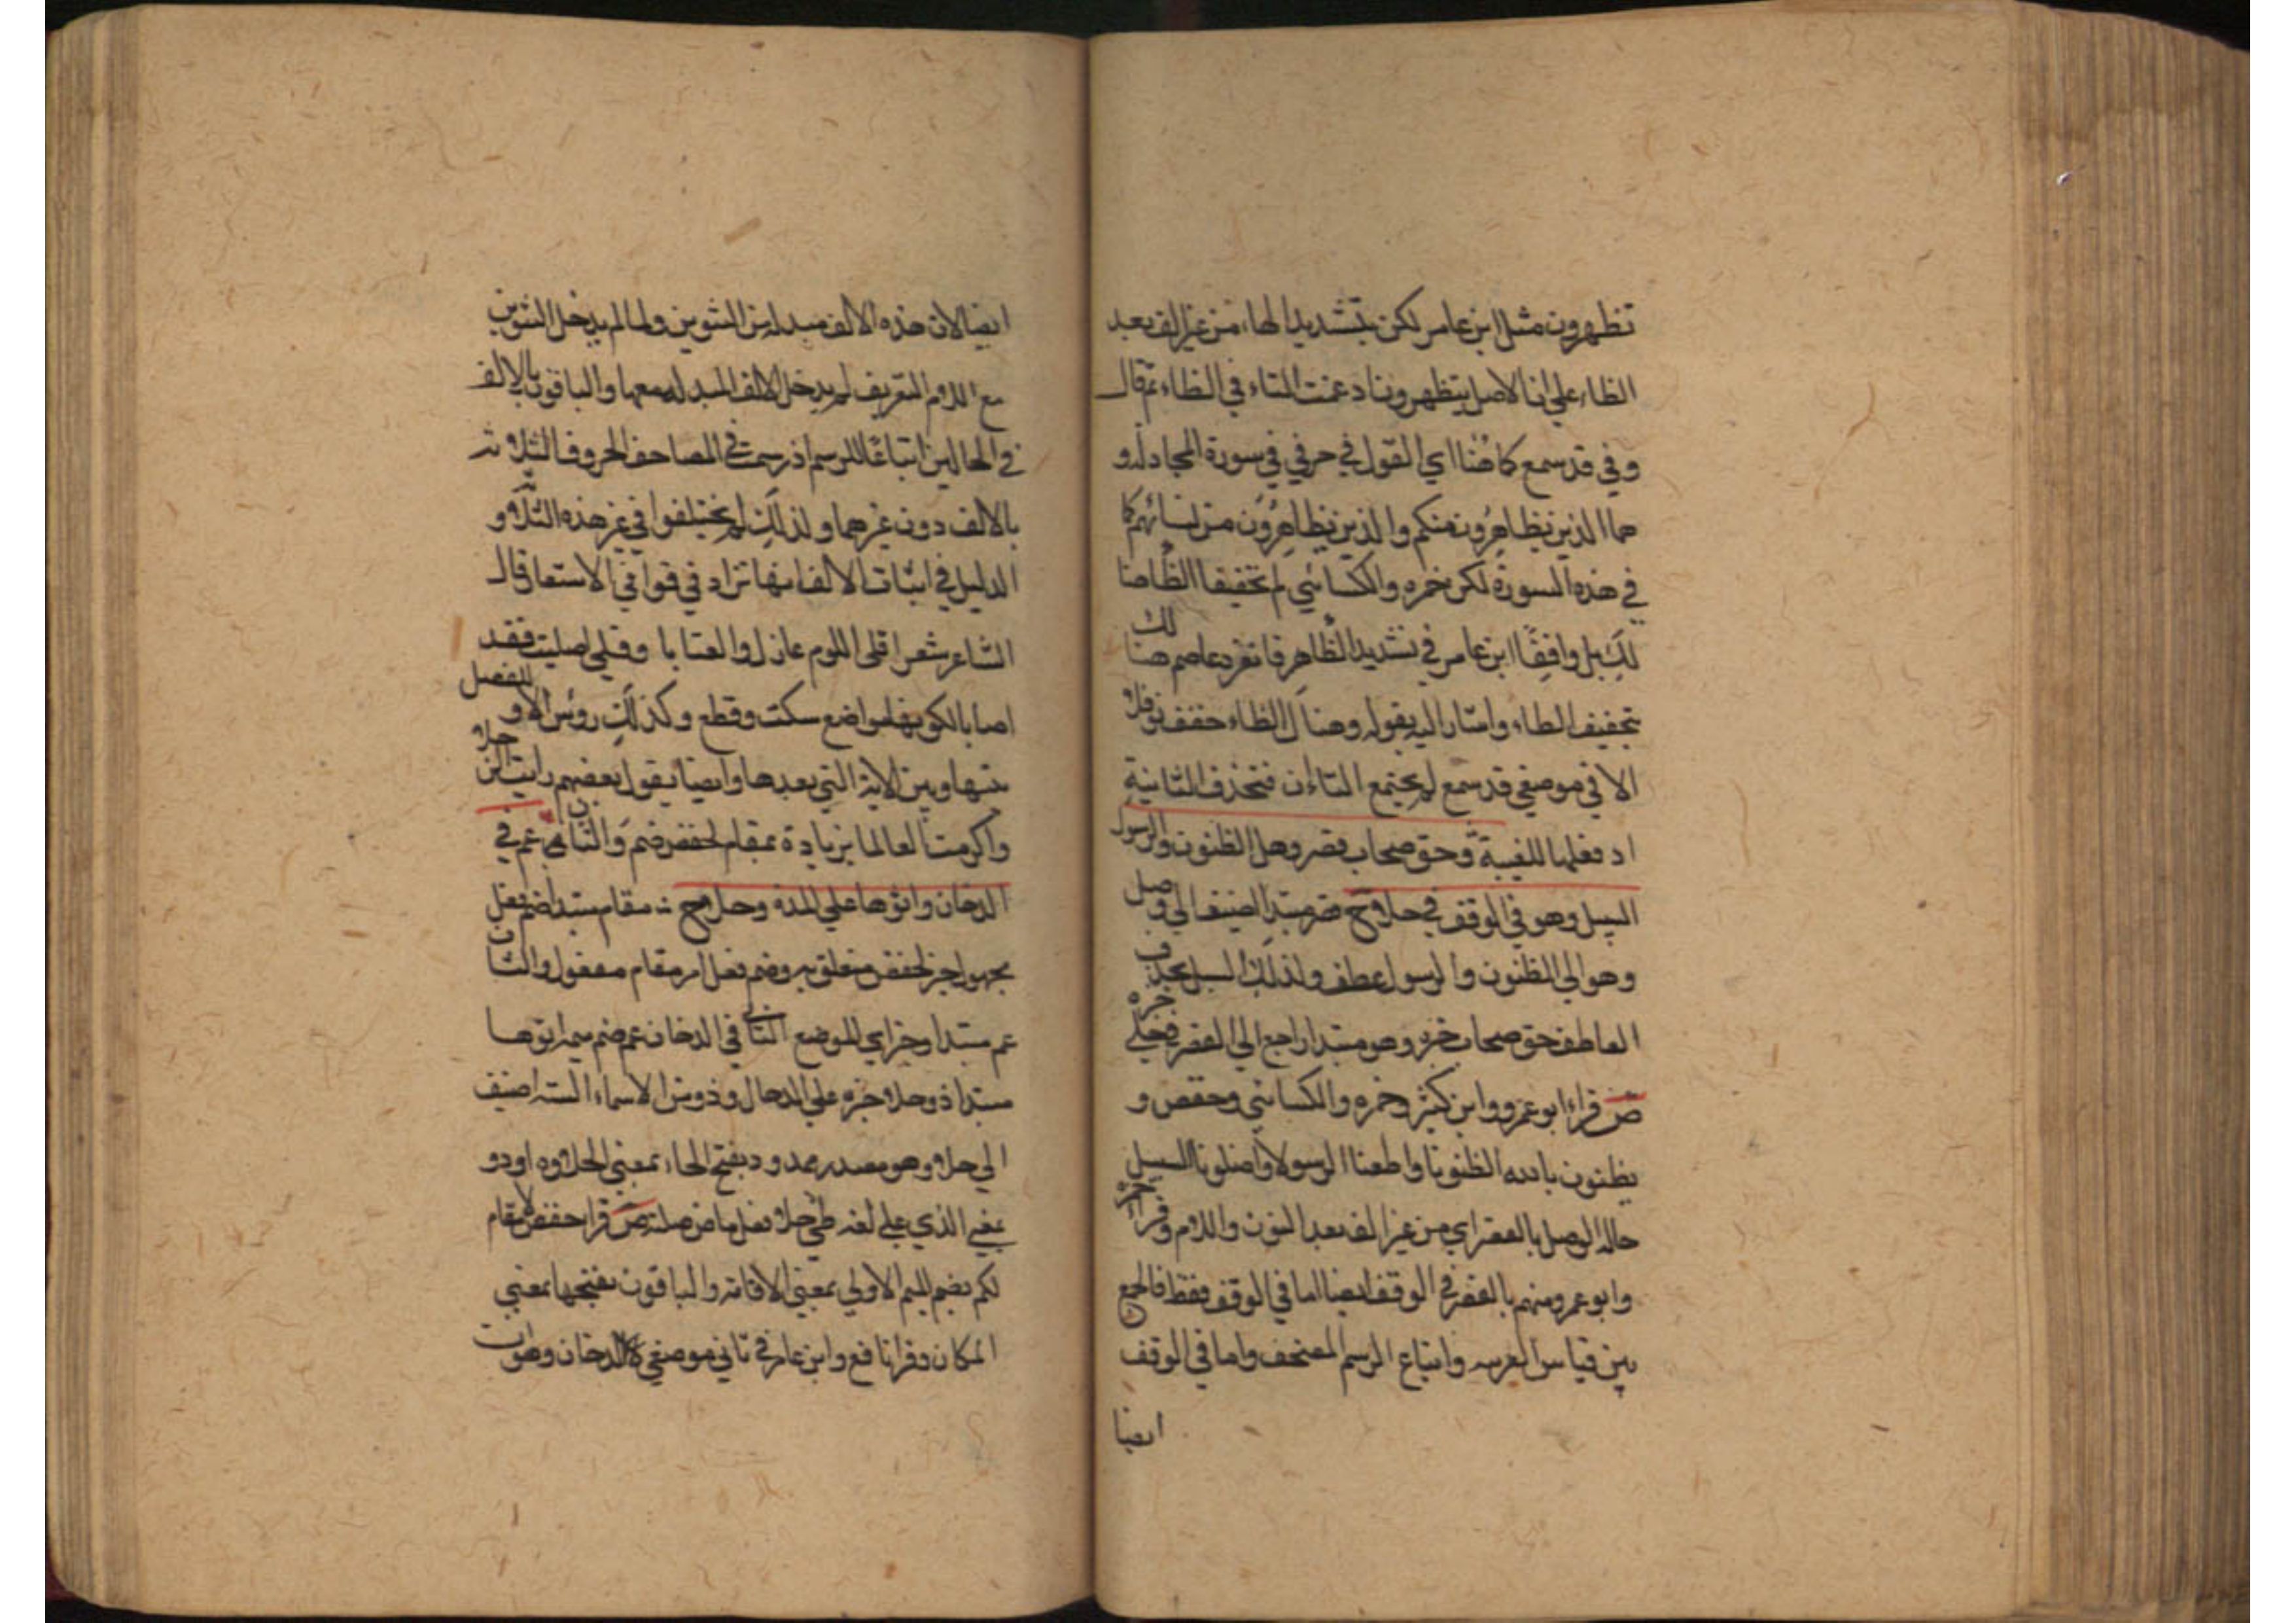 تظهرون مثل ابن عامر لكن بتشديد الهاء من غير الف بعد
الظاء علي ان الاصل يتظهرون ادغمت التاء في الظاء ثم قال
وفي قد سمع كما هنا اي القول في حرفي في سورة المجادلة و
هما الذين يظاهرون منكم والذين يظاهرون من نسائهم كما
في هذه السورة لكن حمزه والكسائي لم تخفيفا الظا هنا
لك بل وافقا ابن عامر في تشديد الظا هر فانفرد عاصم هنا لك
بتخفيف الظاء واشار اليه بقوله وهنا ك الظاء خفف نوفلا
الا في موضعي قد سمع لم يجتمع التاءان فتحذف الثانية
اذ فعلها للغيبة وحق صحاب قصر وصل الظنون والرسول
السبيل وهو في الوقف في حلا ح قصر مبتدا اضيف الي وصل
وهو الي الظنون والرسول عطف ولذلك السبيل بحذف
العاطف حق صحاب خبره وهو مبتدا راجع الي القصر في حلي خبره
ص قراء ابو عمرو وابن كثير وحمزه والكسائي وحفص و
يظنون بالله الظنونا واطعنا الرسولا واضلونا السبيل
حالة الوصل بالقصر اي من غير الف بعد النون واللام وقرا حمزه
وابو عمرو منهم بالقصر في الوقف ايضا اما في الوقف فقط فالجمع
بين قياس العربيه واتباع الرسم المصحف واما في الوقف
ايضا
ايضا لان هذه الالف مبدله من التنوين ولما لم يدخل التنوين
مع اللام التعريف لم يدخل الالف المبدله معها والباقون بالالف
في الحالين اتباعا للرسم اذ رسمت في المصاحف الحروف الثلاثه
بالالف دون غيرهما ولذلك لم يختلفوا في غير هذه الثلاثه و
الدليل في اثبات الالف انها تزاد في قوافي الاستعا قال
الشاعر شعر اقلي اللوم عاذل والعتابا وقلي اصليت فقد
اصابا لكونها مواضع سكت وقطع وكذلك رؤس الاو للفصل
بينها وبين الاية التي بعدها وايضا يقول بعضهم رايت الرجلا
واكرمت العالما بزيادة مقام لحفص ضم والثان عم في
الدخان واتوها علي المد ذو حلا ح مقام مبتدا ضم فعل
مجهول خبر لحفص متعلق به وضم فعل امر مقام مفعول والثان
عم مبتدا وخبر اي للموضع الثاني في الدخان عم ضم ميمه اتوها
مبتدا ذو حلا خبره علي المد حال وذو من الاسماء السته اضيف
الي حلا وهو مصدر ممدود بفتح الحاء بمعني الحلاوه او ذو
بمعني الذي علي لغه طي حلا فعل ماض صلته ص قرا حفص لا مقام
لكم بضم الميم الاولي بمعني الاقامه والباقون بفتحها بمعني
المكان وقرا نافع وابن عامر في ثاني موضعي الدخان وهو ان